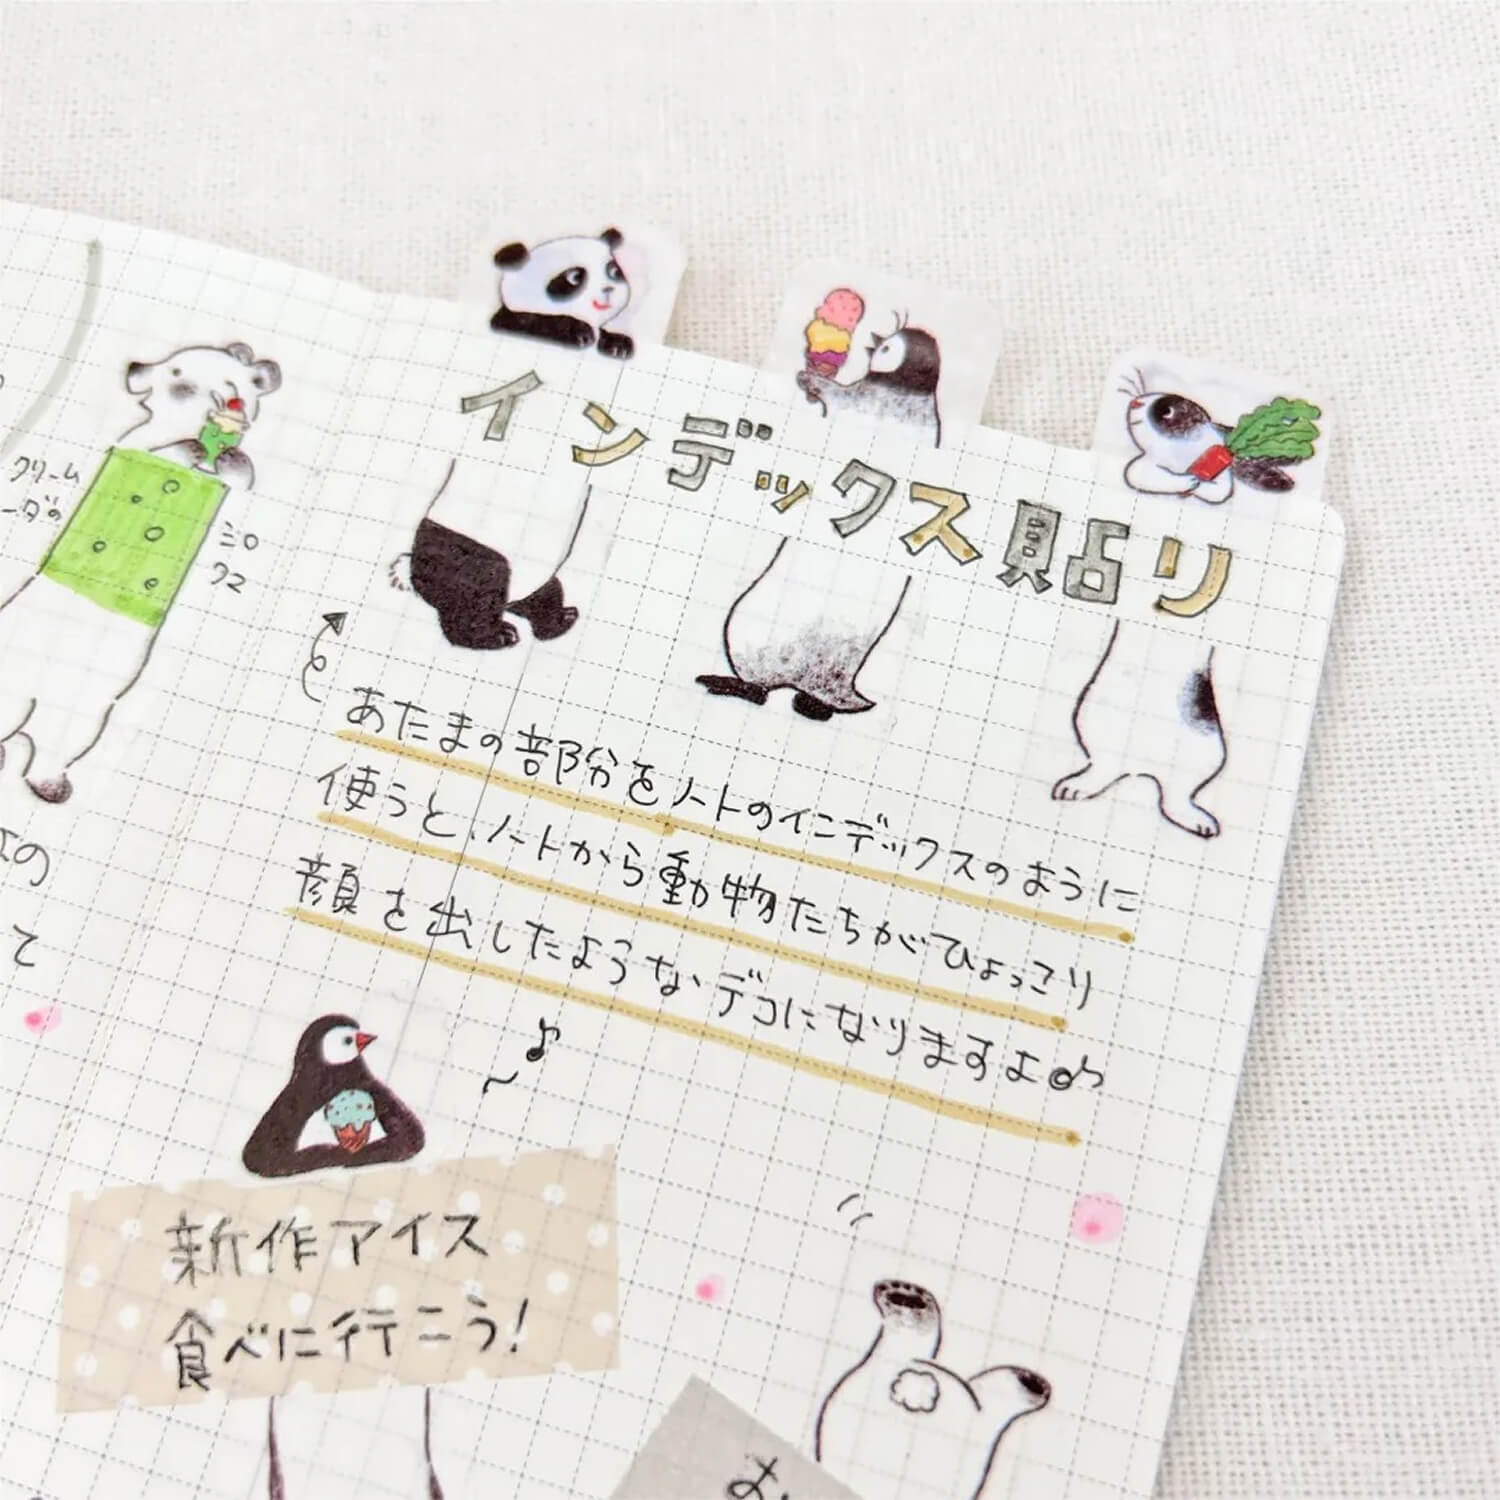 インデックス貼り
クリーム
ーダの
シロ
クマ
あたまの部分をノートのインデックスのように
使うと、ノートから動物たちがひょっこり
顔を出したようなデコになりますよ
の
て
新作アイス
食べに行こう!